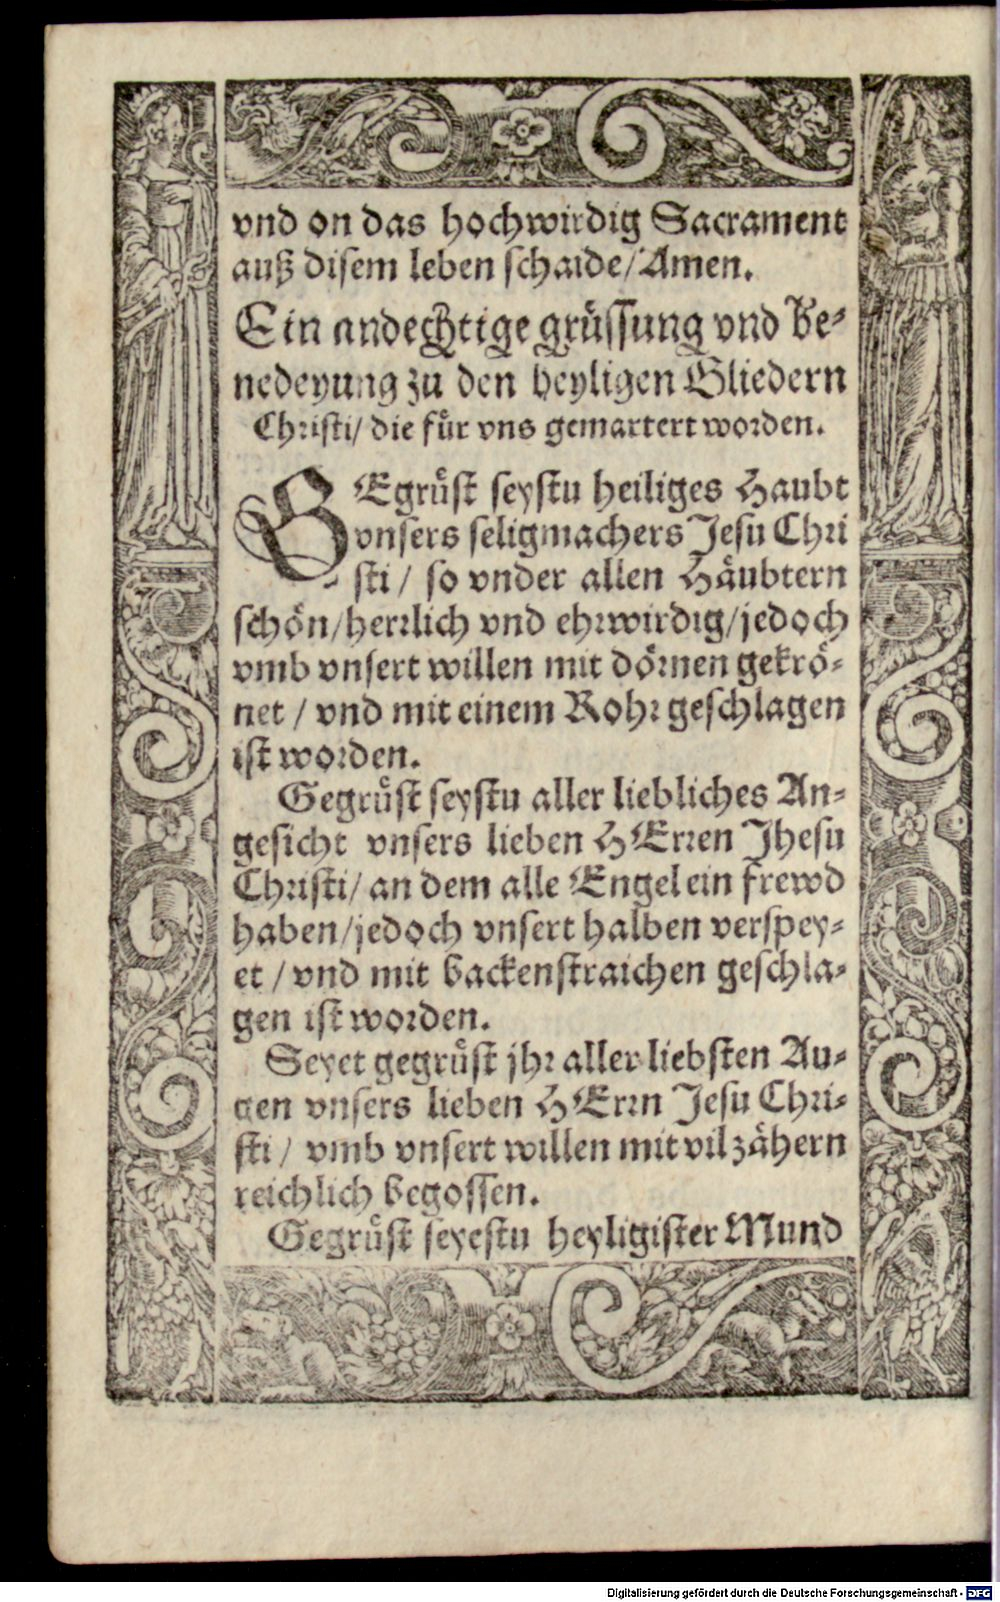 vnd on das hochwirdig Sacrament
auß disem leben schaide/ Amen.
Ein andechtige grüssung vnd Be-
nedeyung zu den heyligen Gliedern
Christi/ die für vns gemartert worden.
GEgrüst seystu heiliges Haubt
vnsers seligmachers Jesu Chri
sti / so vnder allen Häubtern
schön/herrlich vnd ehrwirdig/jedoch
vmb vnsert willen mit dörnen gekrö-
net / vnd mit einem Rohr geschlagen
ist worden.
Gegrüst seystu aller liebliches An-
gesicht vnsers lieben HErren Jhesu
Christi/ an dem alle Engel ein frewd
haben/jedoch vnsert halben verspey-
et / vnd mit backenstraichen geschla-
gen ist worden.
Seyet gegrüst jhr aller liebsten Au-
gen vnsers lieben HErrn Jesu Chri-
sti / vmb vnsert willen mit vil zähern
reichlich begossen.
Gegrüst seyestu heyligister Mund
Digitalisierung gefördert durch die Deutsche Forschungsgemeinschaft - DFG